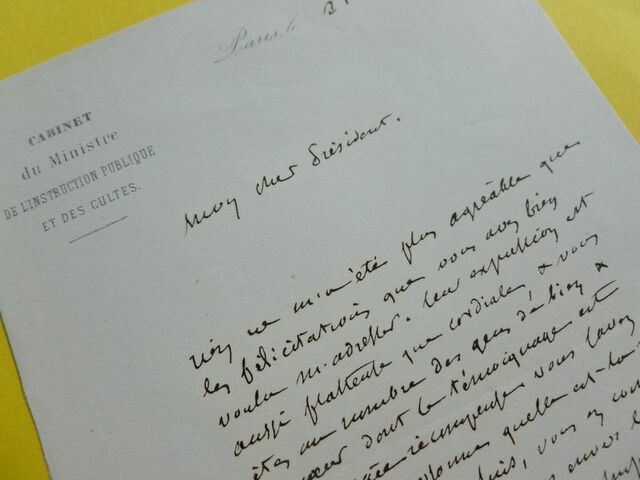 Paris, le
CABINET
du Ministre
DE L'INSTRUCTION PUBLIQUE
ET DES CULTES.
Mon cher Président.
rien ne m'a été plus agréable que
les félicitations que vous avez bien
voulu m'adresser. Leur expression est
aussi flatteuse que cordiale & vous
êtes au nombre des gens de bien &
cœur dont le témoignage est
récompense. Vous savez
quelle est
vous en
envoyer